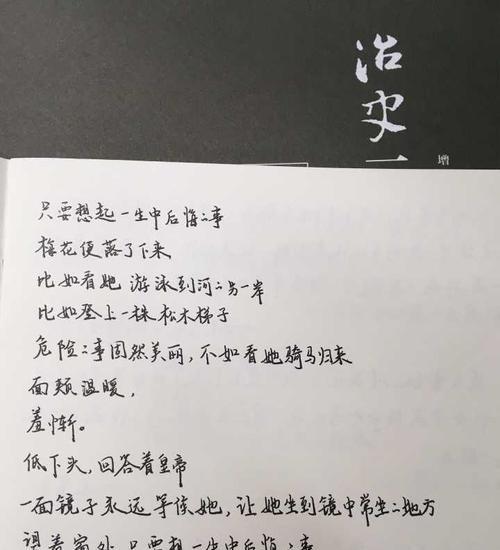 治史一
增
只要想起一生中后悔之事
梅花便落了下来
比如看她 游泳到河之另一岸
比如登上一株松木梯子
危险之事固然美丽，不如看她骑马归来
面颊温暖，
羞惭。
低下头，回答着皇帝
一面镜子永远等候她，让她坐到镜中常坐之地方
望着窗外 只要想一生中后悔之事